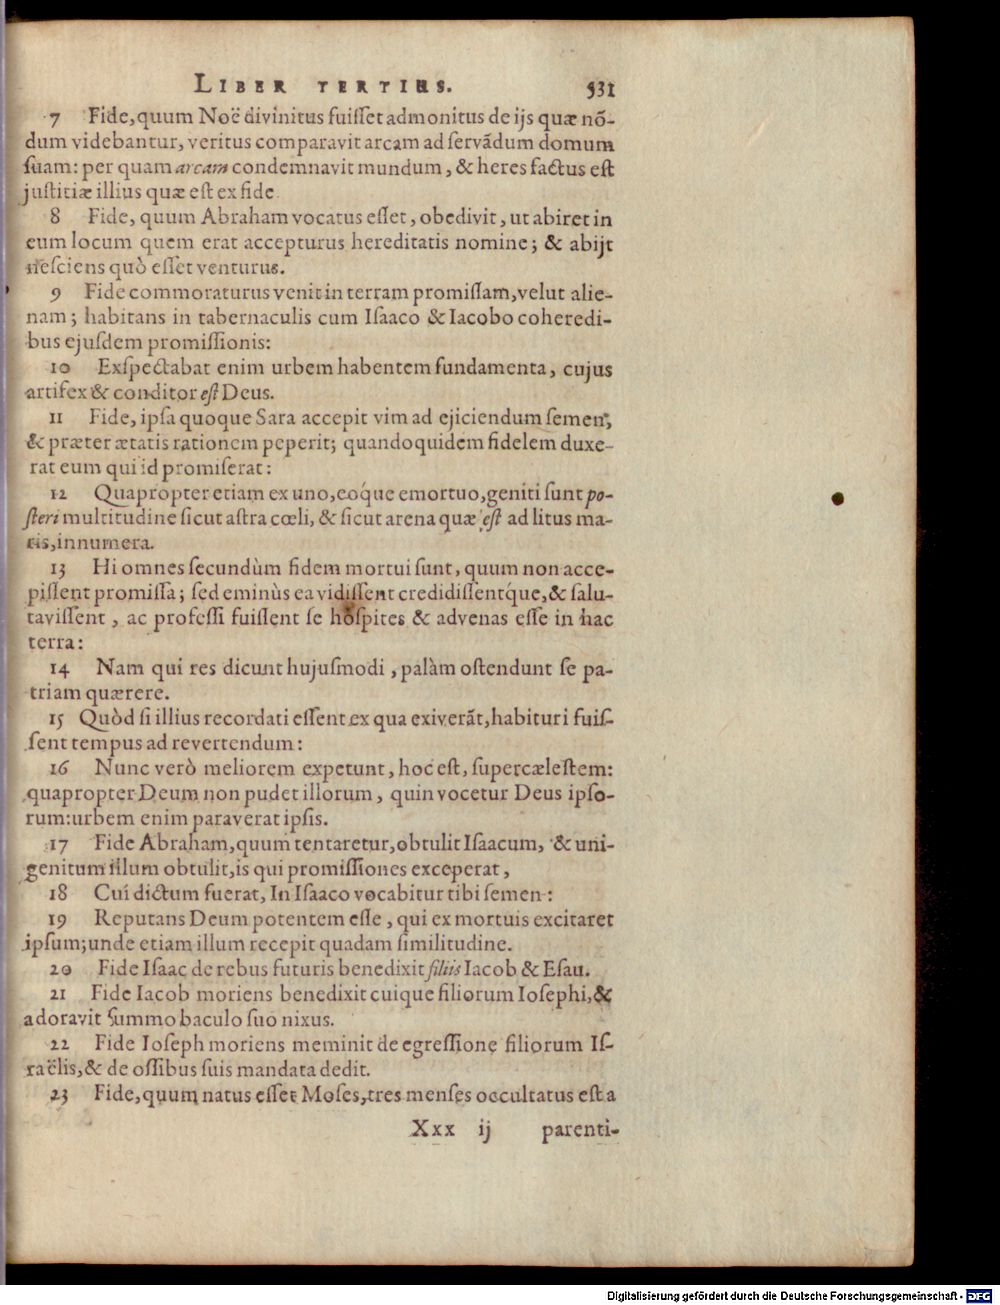 LIBER TERTIUS. 531
7 Fide, quum Noë divinitus fuiſſet admonitus de ijs quæ nõ-
dum videbantur, veritus comparavit arcam ad ſervãdum domum
ſuam: per quam arcam condemnavit mundum, & heres factus eſt
juſtitiæ illius quæ eſt ex fide
8 Fide, quum Abraham vocatus eſſet, obedivit, ut abiret in
eum locum quem erat accepturus hereditatis nomine; & abijt
neſciens quò eſſet venturus.
9 Fide commoraturus venit in terram promiſſam, velut alie-
nam; habitans in tabernaculis cum Iſaaco & Iacobo coheredi-
bus ejuſdem promiſſionis:
10 Exſpectabat enim urbem habentem fundamenta, cujus
artifex & conditor eſt Deus.
11 Fide, ipſa quoque Sara accepit vim ad ejiciendum ſemen,
& præter ætatis rationem peperit; quandoquidem fidelem duxe-
rat eum qui id promiſerat:
12 Quapropter etiam ex uno, eóque emortuo, geniti ſunt po-
ſteri multitudine ſicut aſtra cœli, & ſicut arena quæ eſt ad litus ma-
ris, innumera.
13 Hi omnes ſecundùm fidem mortui ſunt, quum non acce-
piſſent promiſſa; ſed eminùs ea vidiſſent credidiſſentq́ue, & ſalu-
taviſſent, ac profeſſi fuiſſent ſe hoſpites & advenas eſſe in hac
terra:
14 Nam qui res dicunt hujuſmodi, palàm oſtendunt ſe pa-
triam quærere.
15 Quòd ſi illius recordati eſſent ex qua exiverãt, habituri fuiſ-
ſent tempus ad revertendum:
16 Nunc verò meliorem expetunt, hoc eſt, ſupercæleſtem:
quapropter Deum non pudet illorum, quin vocetur Deus ipſo-
rum: urbem enim paraverat ipſis.
17 Fide Abraham, quum tentaretur, obtulit Iſaacum, & uni-
genitum illum obtulit, is qui promiſſiones exceperat,
18 Cui dictum fuerat, In Iſaaco vocabitur tibi ſemen:
19 Reputans Deum potentem eſſe, qui ex mortuis excitaret
ipſum; unde etiam illum recepit quadam ſimilitudine.
20 Fide Iſaac de rebus futuris benedixit filiis Iacob & Eſau.
21 Fide Iacob moriens benedixit cuique filiorum Ioſephi, &
adoravit ſummo baculo ſuo nixus.
22 Fide Ioſeph moriens meminit de egreſſione filiorum Iſ-
raëlis, & de oſſibus ſuis mandata dedit.
23 Fide, quum natus eſſet Moſes, tres menſes occultatus eſt a
Xxx ij parenti-
Digitalisierung gefördert durch die Deutsche Forschungsgemeinschaft - DFG